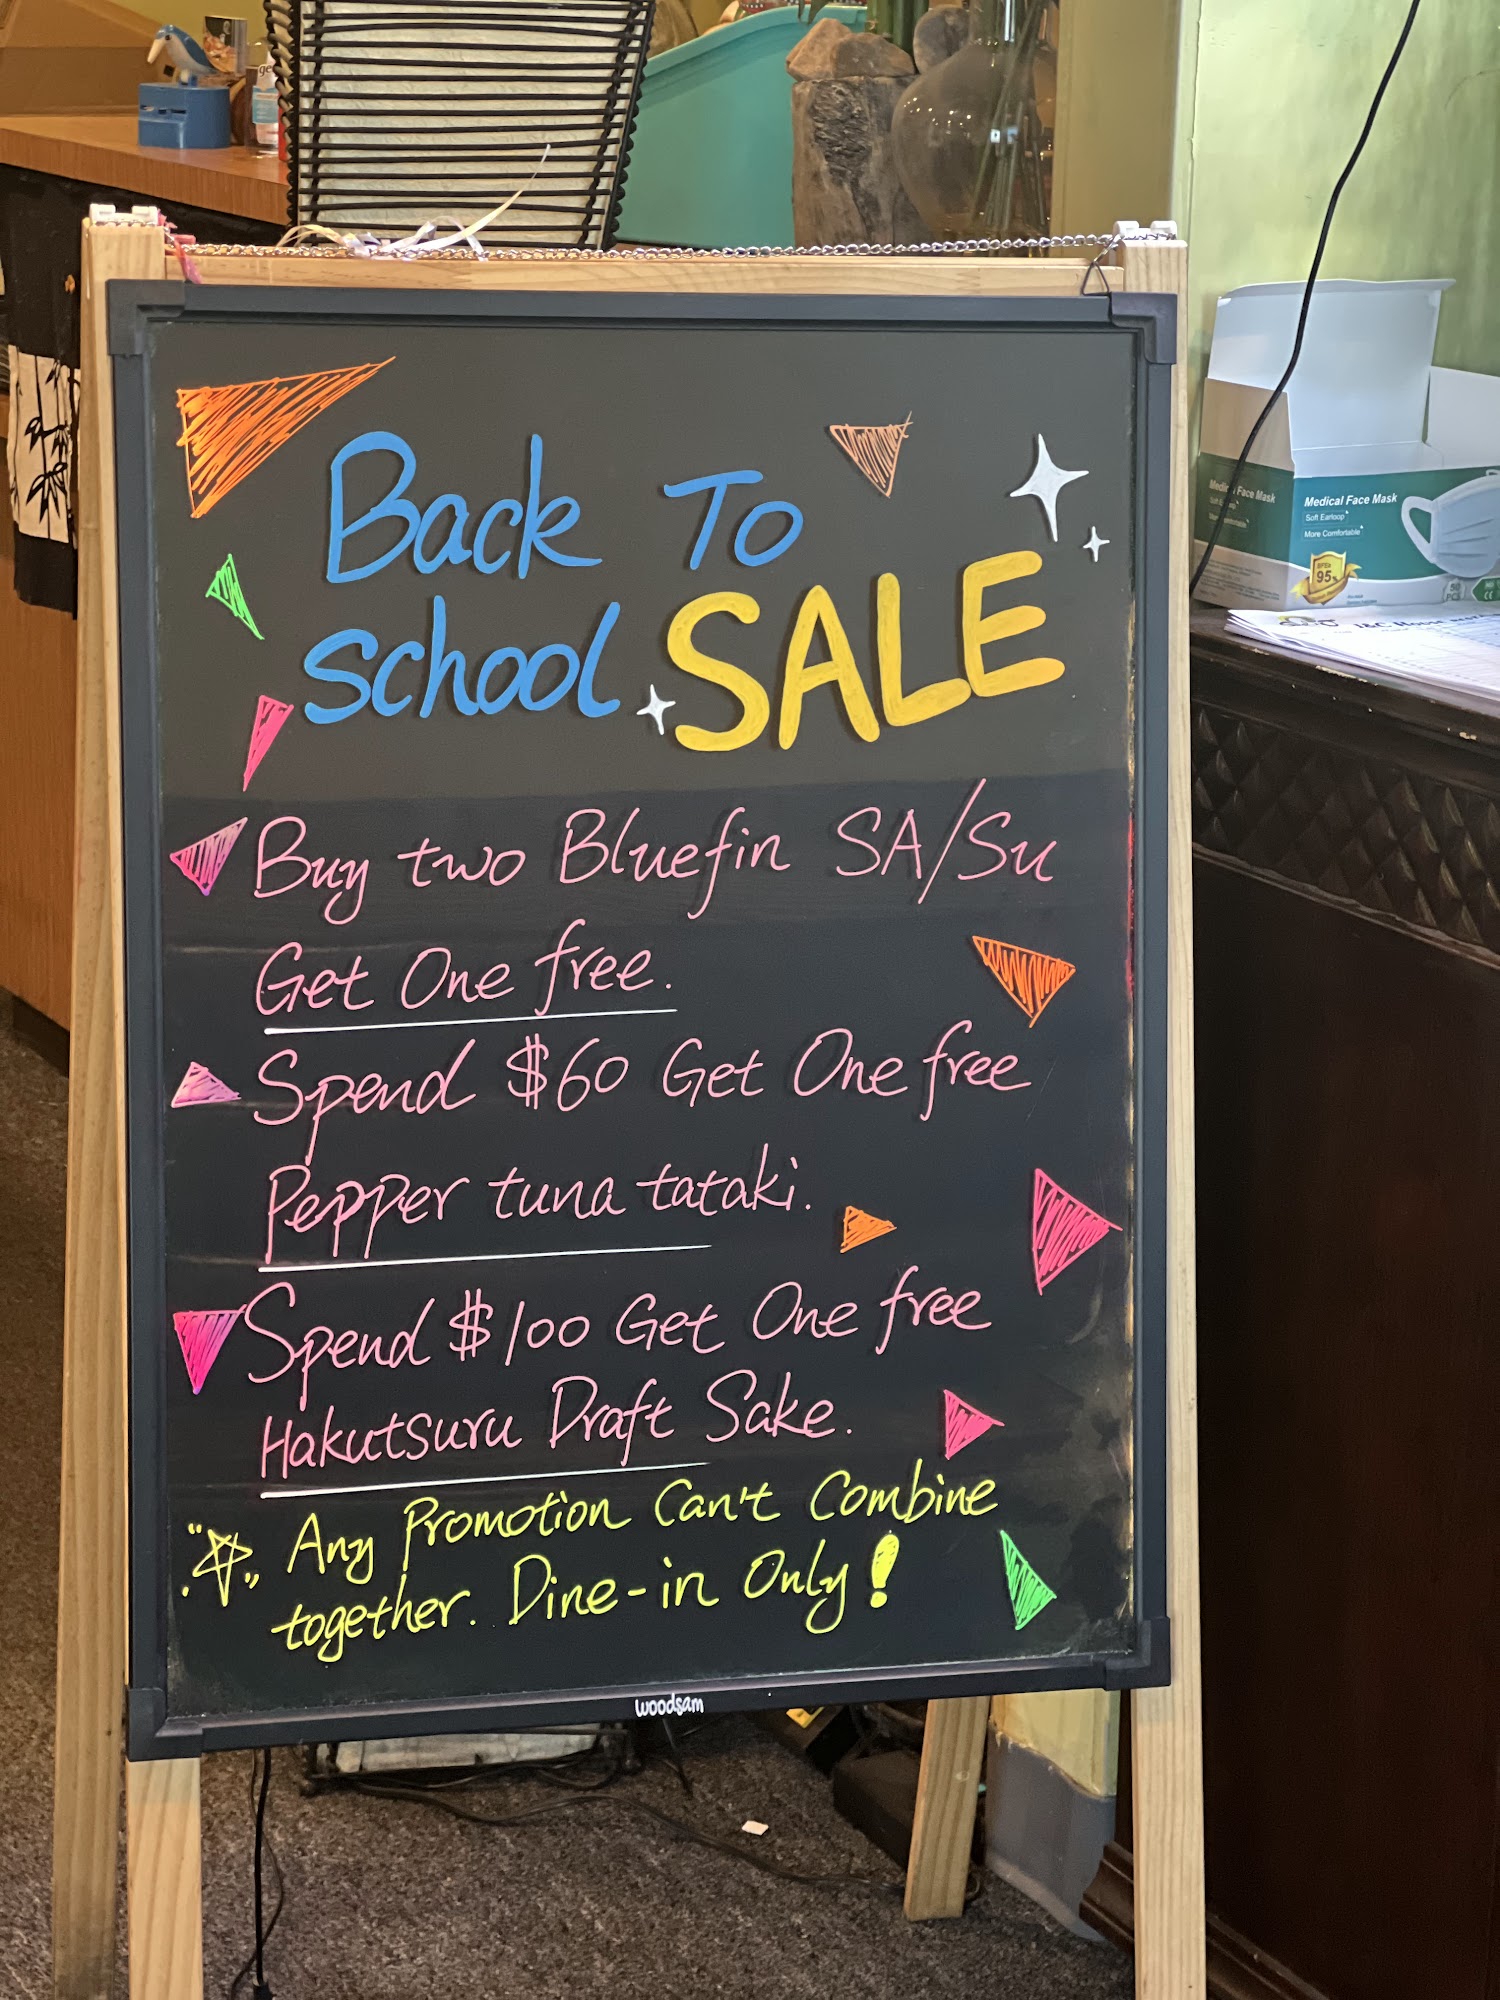 Back To
School SALE
Buy two Bluefin SA/Su
Get One free.
Spend $60 Get One free
Pepper tuna tataki.
Spend $100 Get One free
Hakutsuru Draft Sake.
Any Promotion Can't Combine
together. Dine-in Only!
woodsam
Medical Face Mask
Soft Earloop
More Comfortable
95%
Medical Face Mask